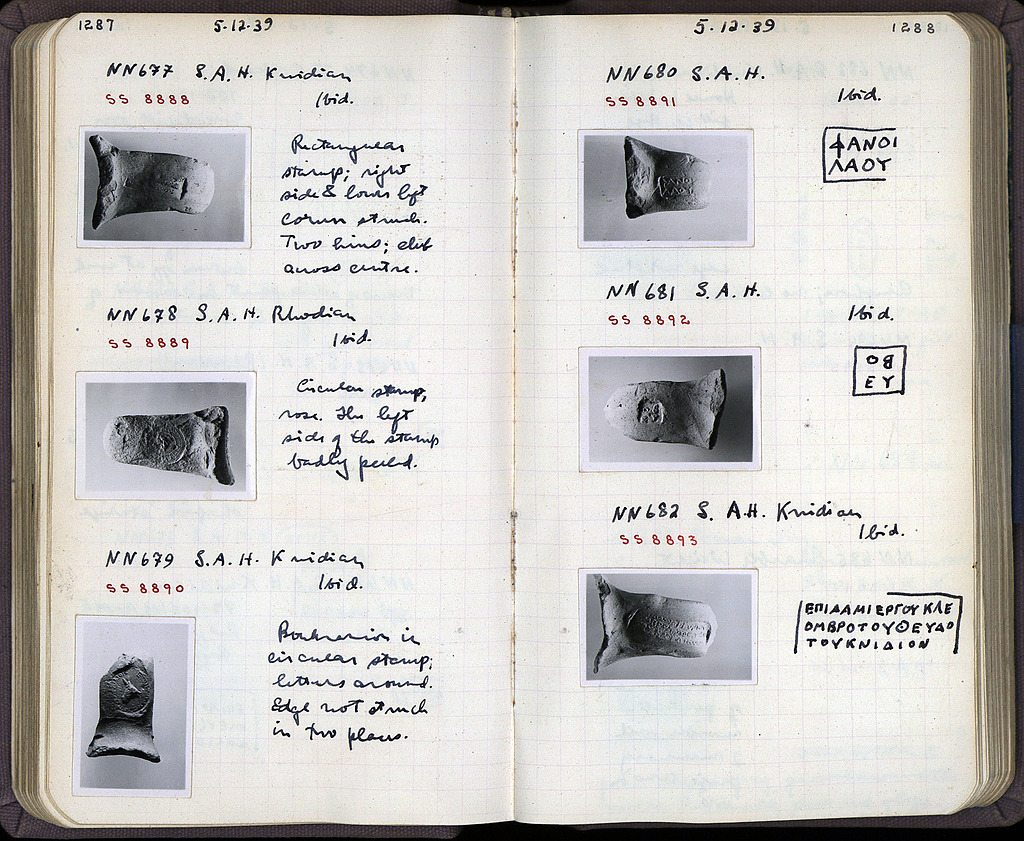 1287
5.12.39
NN677 S.A.H. Knidian
SS 8888
Ibid.
Rectangular
stamp; right
side & lower left
corner struck.
Two lines;
across centre.
NN678 S.A.H. Rhodian
SS 8889
Ibid.
Circular stamp,
rose. The left
side of the stamp
badly peeled.
NN679 S.A.H. Knidian
SS 8890
Ibid.
Boukranion in
circular stamp;
letters around.
Edge not struck
in two places.
5.12.39
1288
NN680 S.A.H.
SS 8891
Ibid.
ΦΑΝΟΙ
ΛΑΟΥ
NN681 S.A.H.
SS 8892
Ibid.
ΟΒ
ΕΥ
NN682 S.A.H. Knidian
SS 8893
Ibid.
ΕΠΙΔΑΜΙΕΡΓΟΥΚΛΕ
ΟΜΒΡΟΤΟΥΘΕΥΔΟ
ΤΟΥΚΝΙΔΙΟΝ